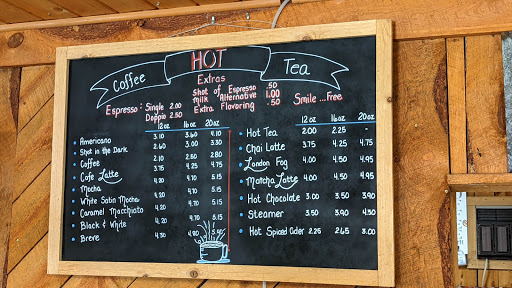 HOT
Coffee Tea
Extras
Shot of Espresso .50
Milk Alternative 1.00
Extra Flavoring .50
Smile ... Free
Espresso: Single 2.00
Doppio 2.50
12oz 16oz 20oz
Americano 3.10 3.60 4.10
Shot in the Dark 2.60 3.00 3.30
Coffee 2.10 2.50 2.80
Cafe Latte 3.75 4.25 4.75
Mocha 4.20 4.70 5.15
White Satin Mocha 4.20 4.70 5.15
Caramel Macchiato 4.20 4.70 5.15
Black & White 4.20 4.70 5.15
Breve 4.30 5.40
12oz 16oz 20oz
Hot Tea 2.00 2.25 -
Chai Latte 3.75 4.25 4.75
London Fog 4.00 4.50 4.95
Matcha Latte 4.00 4.50 4.95
Hot Chocolate 3.00 3.50 3.90
Steamer 3.50 3.90 4.30
Hot Spiced Cider 2.25 2.65 3.00